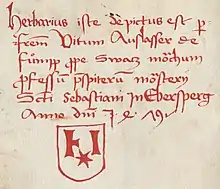 Herbarius iste depictus est p
frem Vitum Auslasser de
fůmpp ꝓpe Swaz mōchum
ꝓfessū pspiterū mōstery
Scti Sebastiani in Ebersperg
Anno dni